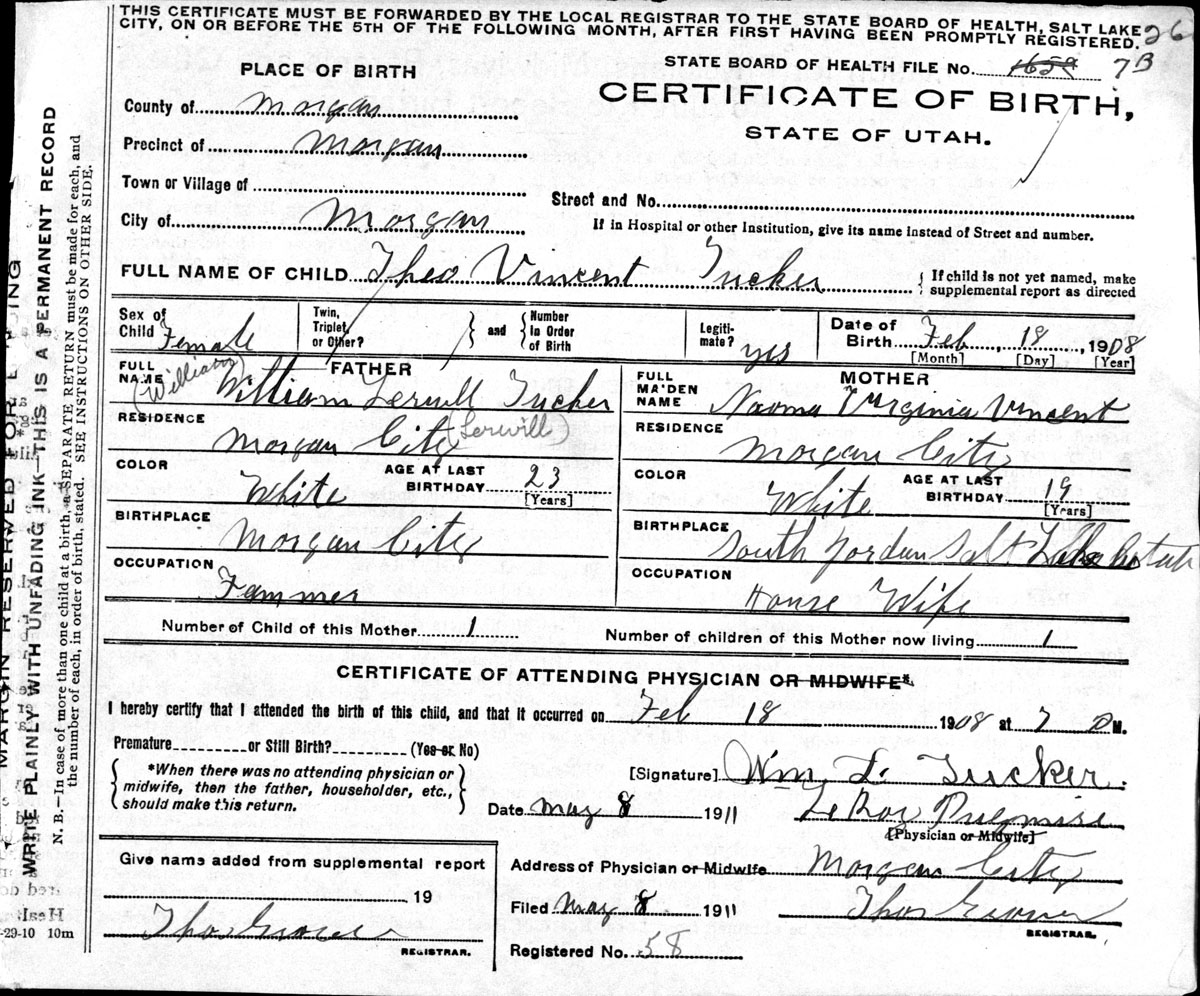 THIS CERTIFICATE MUST BE FORWARDED BY THE LOCAL REGISTRAR TO THE STATE BOARD OF HEALTH, SALT LAKE
CITY, ON OR BEFORE THE 5TH OF THE FOLLOWING MONTH, AFTER FIRST HAVING BEEN PROMPTLY REGISTERED. 26
PLACE OF BIRTH
STATE BOARD OF HEALTH FILE No. 1659 7B
CERTIFICATE OF BIRTH,
STATE OF UTAH.
County of Morgan
Precinct of Morgan
Town or Village of
Street and No.
City of Morgan
If in Hospital or other Institution, give its name instead of Street and number.
FULL NAME OF CHILD Theo Vincent Tucker
{ If child is not yet named, make supplemental report as directed
Sex of Child Female
Twin, Triplet, or Other? } and { Number In Order of Birth
Legiti-mate? yes
Date of Birth Feb, 18, 1908
[Month] [Day] [Year]
FATHER
FULL NAME (William) William Lerwill Tucker
RESIDENCE Morgan City (Lerwill)
COLOR White
AGE AT LAST BIRTHDAY 23 [Years]
BIRTHPLACE Morgan City
OCCUPATION Farmer
MOTHER
FULL MAIDEN NAME Naoma Virginia Vincent
RESIDENCE Morgan City
COLOR White
AGE AT LAST BIRTHDAY 19 [Years]
BIRTHPLACE South Jordan Salt Lake Utah
OCCUPATION House Wife
Number of Child of this Mother 1
Number of children of this Mother now living 1
CERTIFICATE OF ATTENDING PHYSICIAN OR MIDWIFE*
I hereby certify that I attended the birth of this child, and that it occurred on Feb 18 1908 at 7 P M.
Premature or Still Birth? (Yes or No)
{ *When there was no attending physician or
midwife, then the father, householder, etc.,
should make this return. }
[Signature] Wm L. Tucker.
Date May 8 1911
[Physician or Midwife]
Give name added from supplemental report
19
REGISTRAR.
Address of Physician or Midwife Morgan City
Filed May 8 1911
REGISTRAR.
Registered No. 58
MARGIN RESERVED FOR
WRITE PLAINLY WITH UNFADING INK—THIS IS A PERMANENT RECORD
N. B.—In case of more than one child at a birth, a SEPARATE RETURN must be made for each, and
the number of each, in order of birth, stated. SEE INSTRUCTIONS ON OTHER SIDE.
-29-10 10m